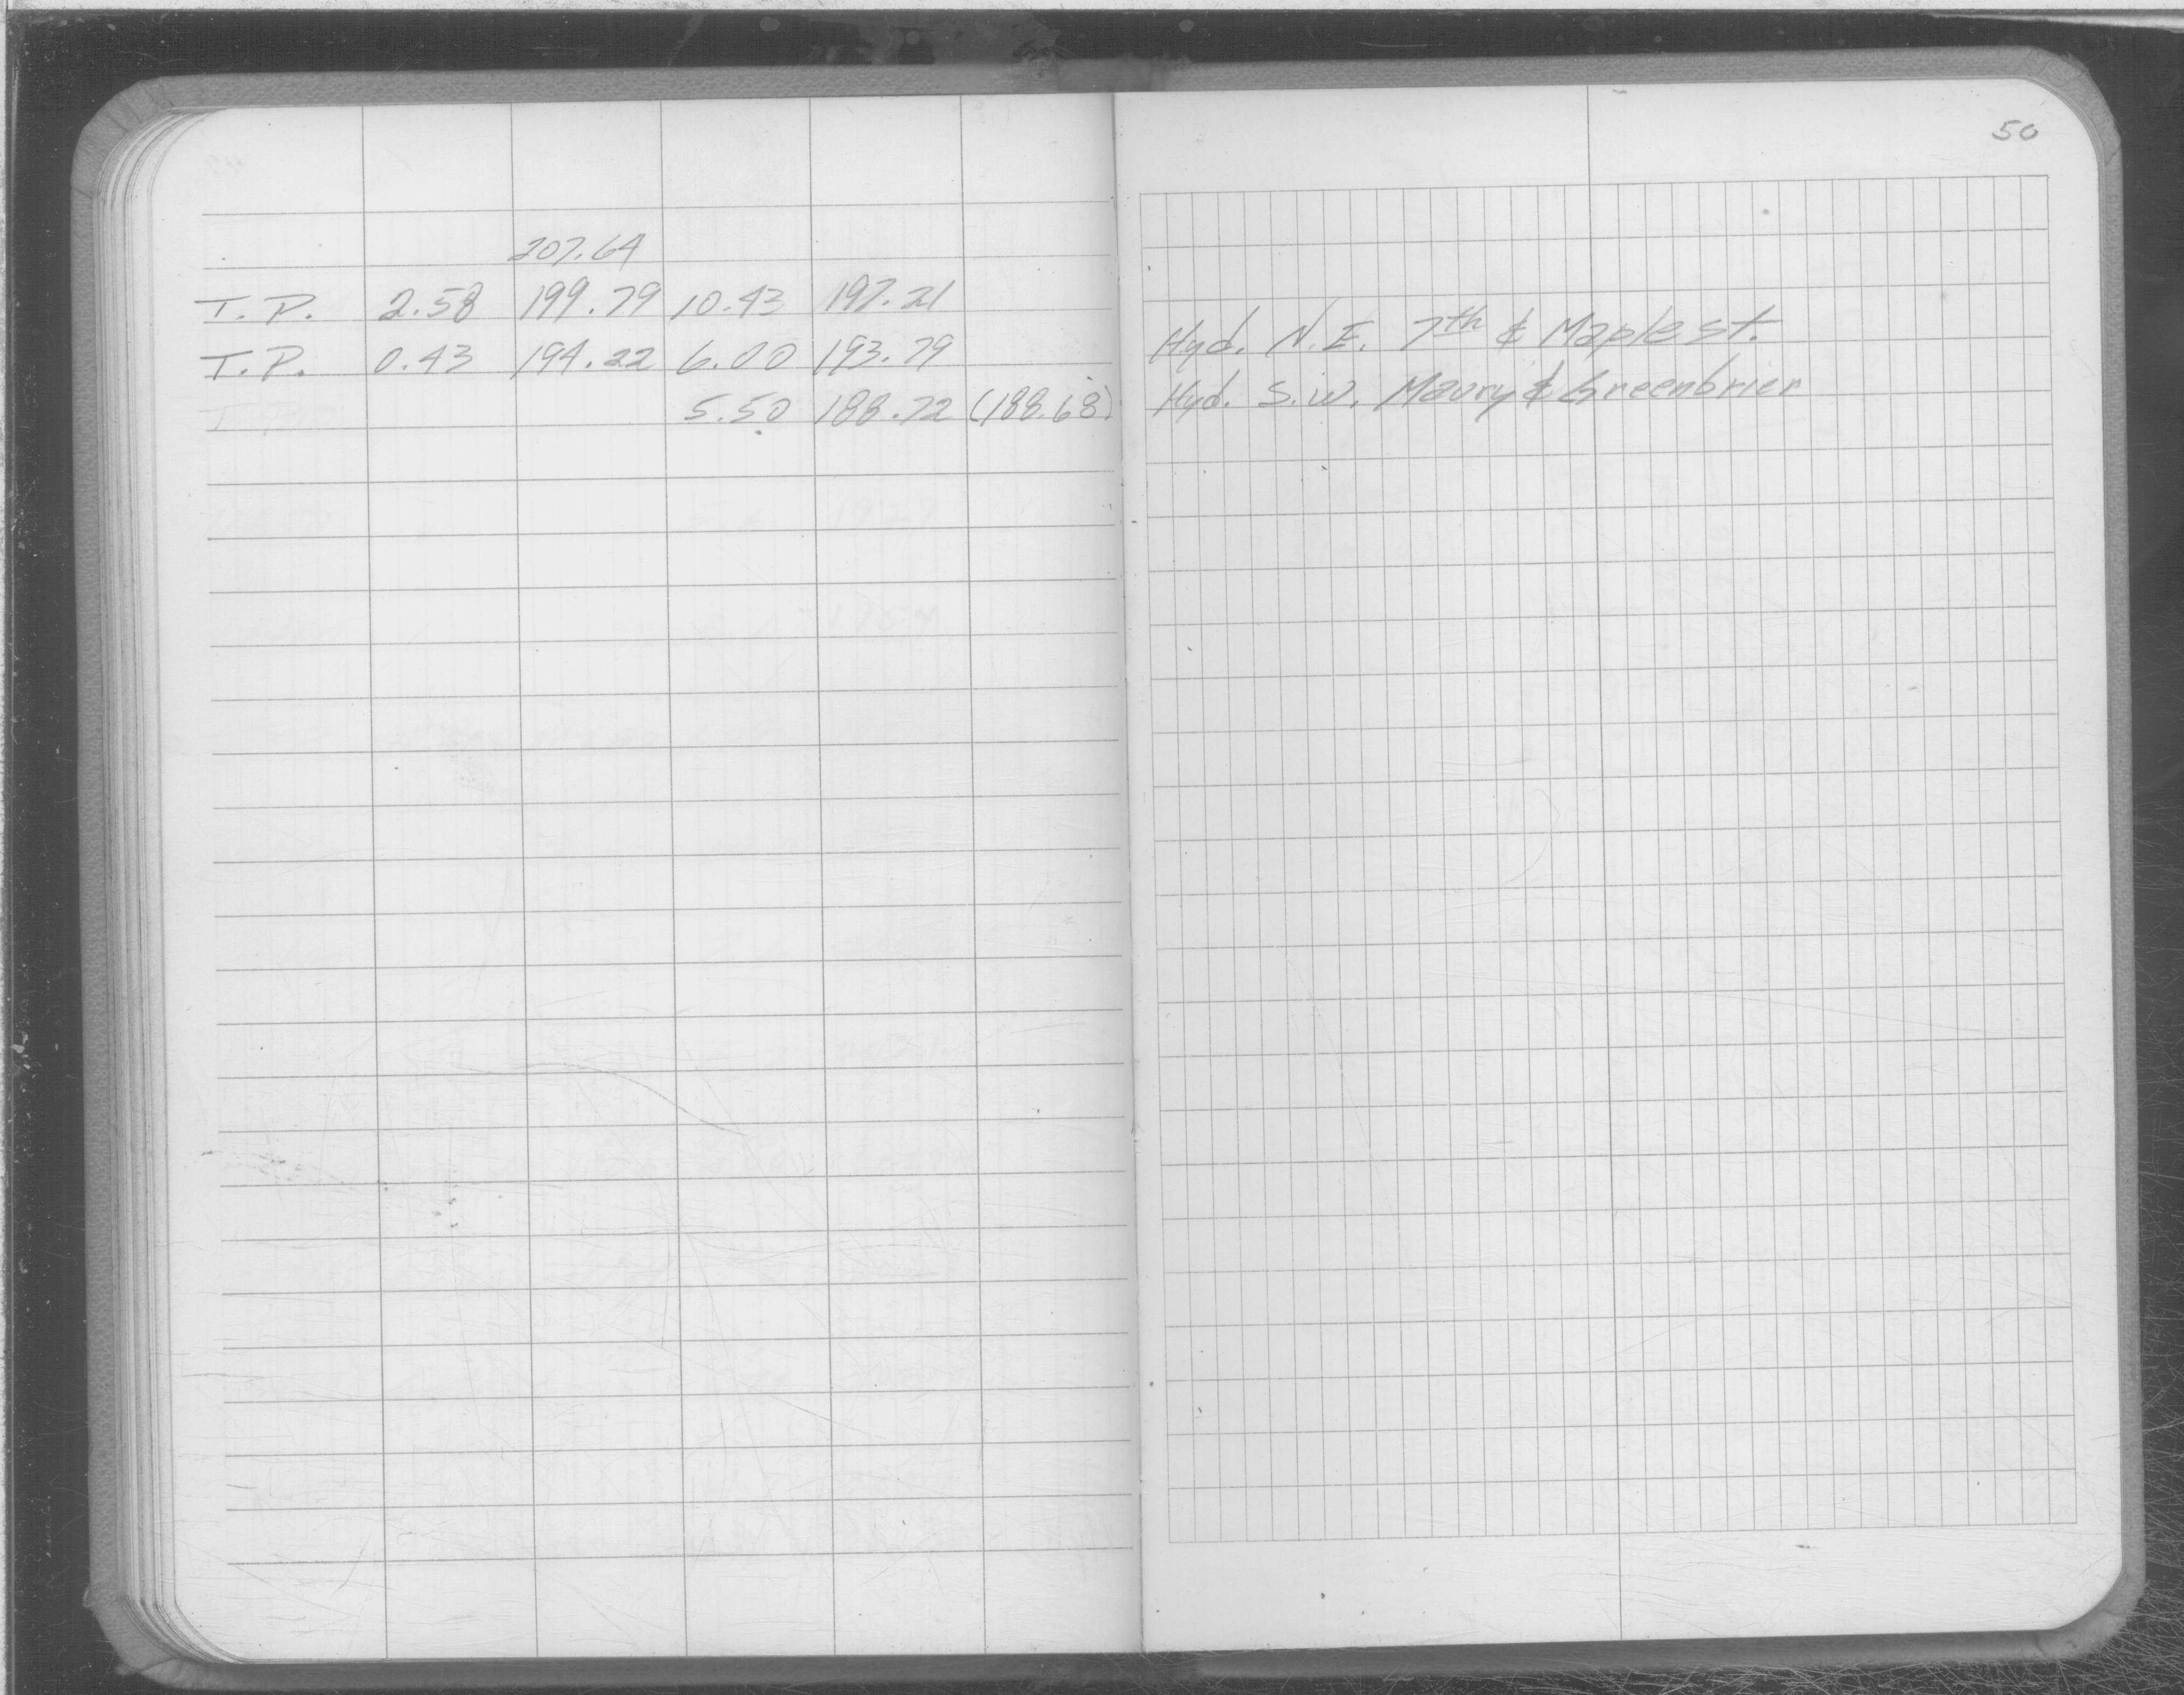 50
207.64
T.P. 2.58 199.79 10.43 197.21
T.P. 0.43 194.22 6.00 193.79 Hyd. N.E. 7th & Maple st.
5.50 188.72 (188.68) Hyd. S.W. Maury & Greenbrier